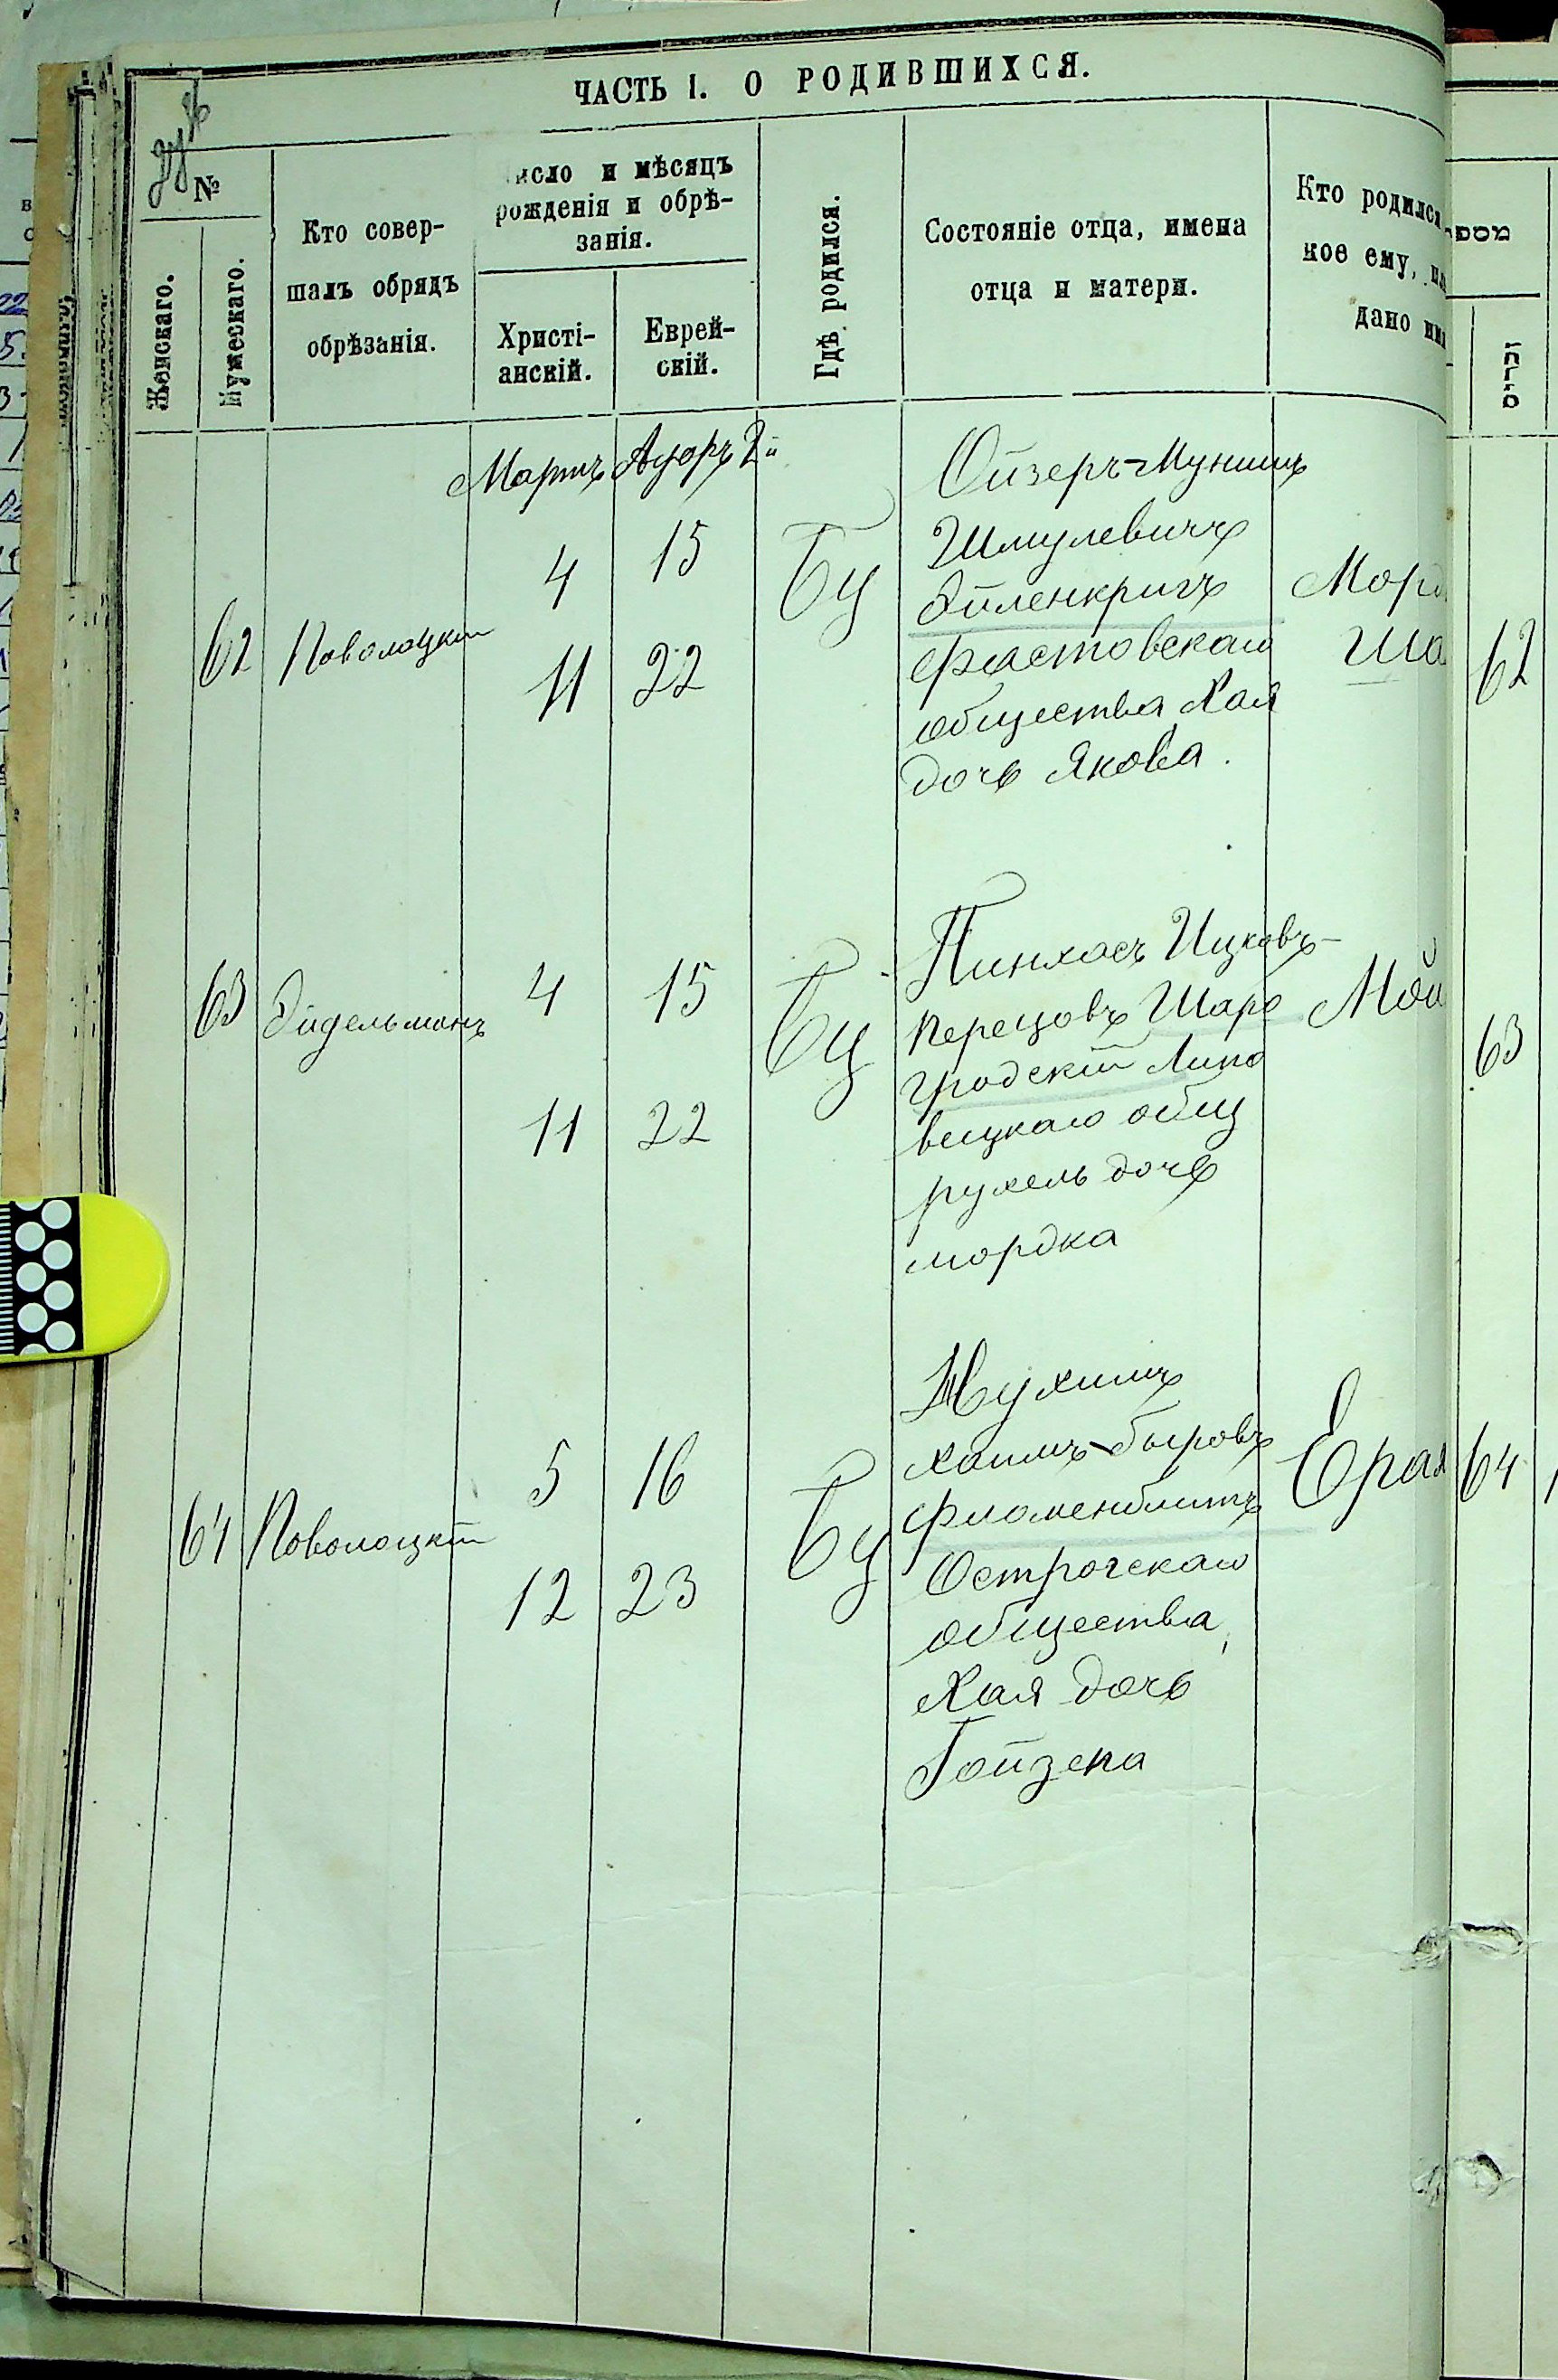 ЧАСТЬ I. О РОДИВШИХСЯ.
№
Женскаго.
Мужескаго.
Кто совер-
шалъ обрядъ
обрѣзанія.
исло и мѣсяцъ
рожденія и обрѣ-
занія.
Христі-
анскій.
Еврей-
скій.
Гдѣ родился.
Состояніе отца, имена
отца и матери.
Кто родился
кое ему,
дано им
מספר
זכרים
Мартъ Адаръ 2й
62 Поволоцкій
4 15
11 22
Бц
Ойзеръ-Мунишъ
Шмулевичъ
Эйленкригъ
Фастовскаго
общества Хая
дочь Якова.
Морд
Шо
62
63 Эйдельманъ
4 15
11 22
Бц
Пинхасъ Ицковъ-
Перецовъ Шаро
гродскій Липо
вецкаго общ
рухель дочь
мордка
Мой
63
64 Поволоцкій
5 16
12 23
Бц
Нухимъ
хаимъ-Быровъ
Флюменблитъ
Острогскаго
общества,
Хая дочь
Гойзена
Срая
64